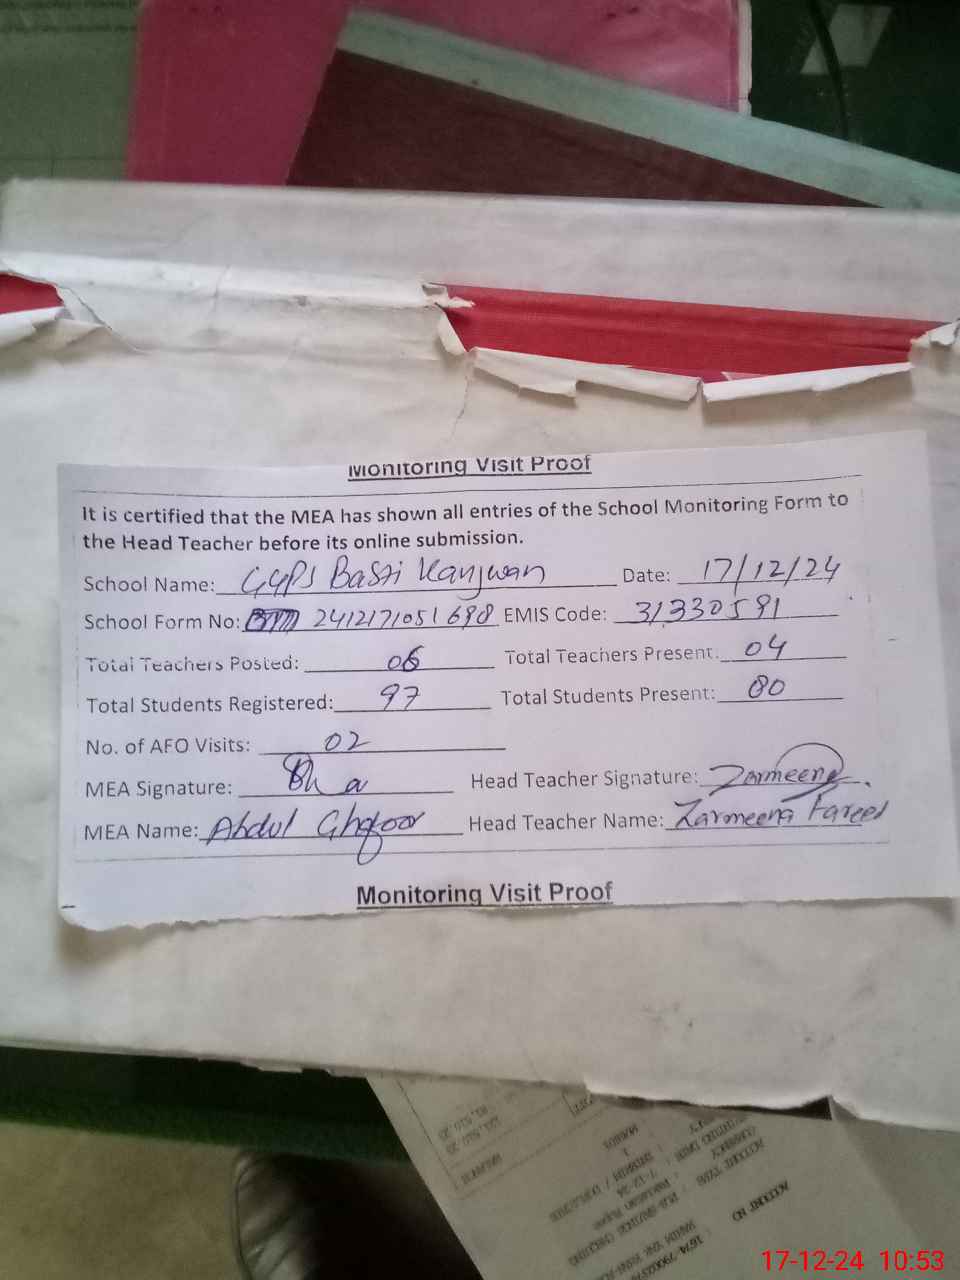 Monitoring Visit Proof
It is certified that the MEA has shown all entries of the School Monitoring Form to
the Head Teacher before its online submission.
School Name: GGPS Basti Kanjwan Date: 17/12/24
School Form No: 2412171051698 EMIS Code: 31330591
Total Teachers Posted: 06 Total Teachers Present: 04
Total Students Registered: 97 Total Students Present: 80
No. of AFO Visits: 02
MEA Signature: Head Teacher Signature: Zarmeena
MEA Name: Abdul Ghafoor Head Teacher Name: Zarmeena Fareed
Monitoring Visit Proof
ACCOUNT NO
17-12-24 10:53